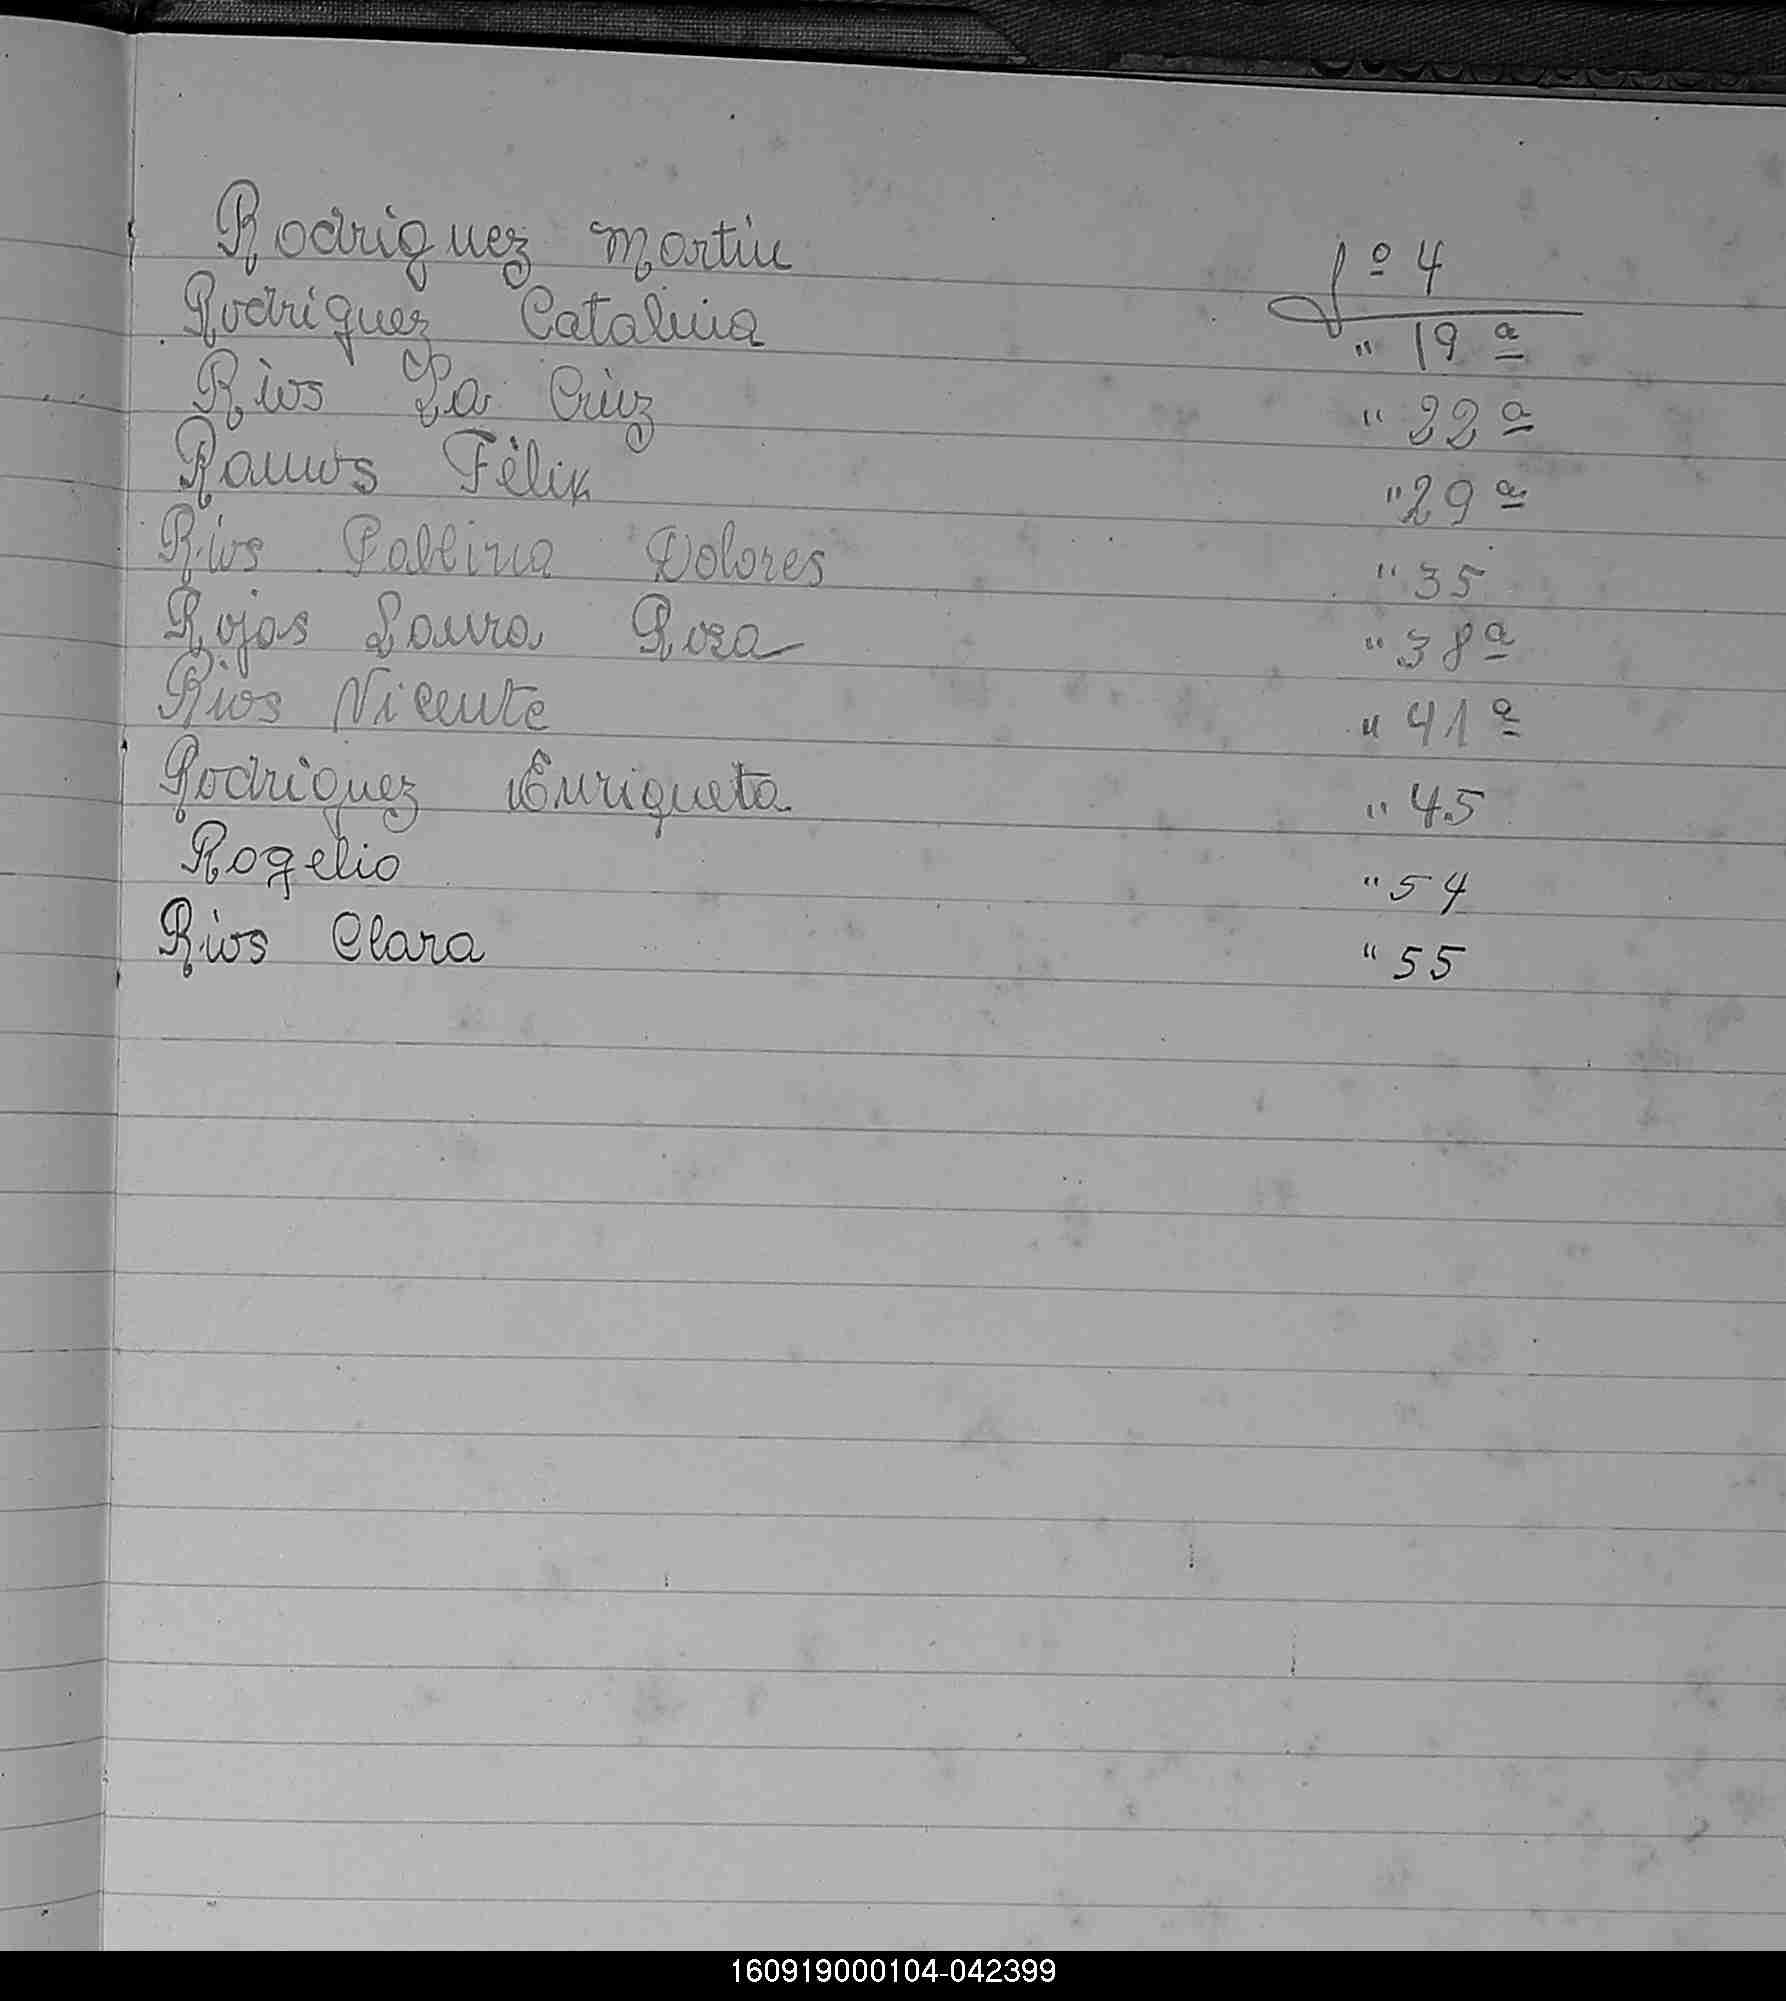 Rodriguez Martin fº 4
Rodriguez Catalina " 19 a
Rios La Cruz " 22 a
Ramos Félix " 29 a
Rios Dolores " 35
Rojas Laura Rosa " 38 a
Rios Vicente " 41 a
Rodriguez Enriqueta " 45
Rogelio " 54
Rios Clara " 55
160919000104-042399